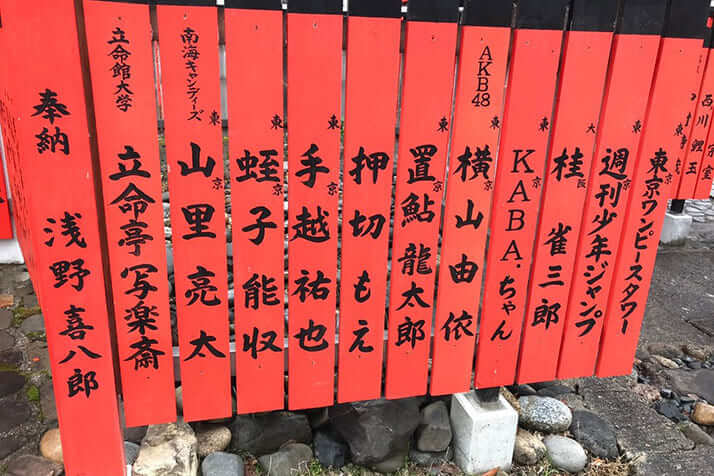 西川鯉
東京
東京ワンピースタワー
東京
週刊少年ジャンプ
大阪
桂 雀三郎
東京
KABA.ちゃん
AKB48
東京
横山由依
東京
置鮎龍太郎
東京
押切もえ
東京
手越祐也
東京
蛭子能収
南海キャンディーズ
東京
山里亮太
立命館大学
立命亭写楽斎
奉納
浅野喜八郎